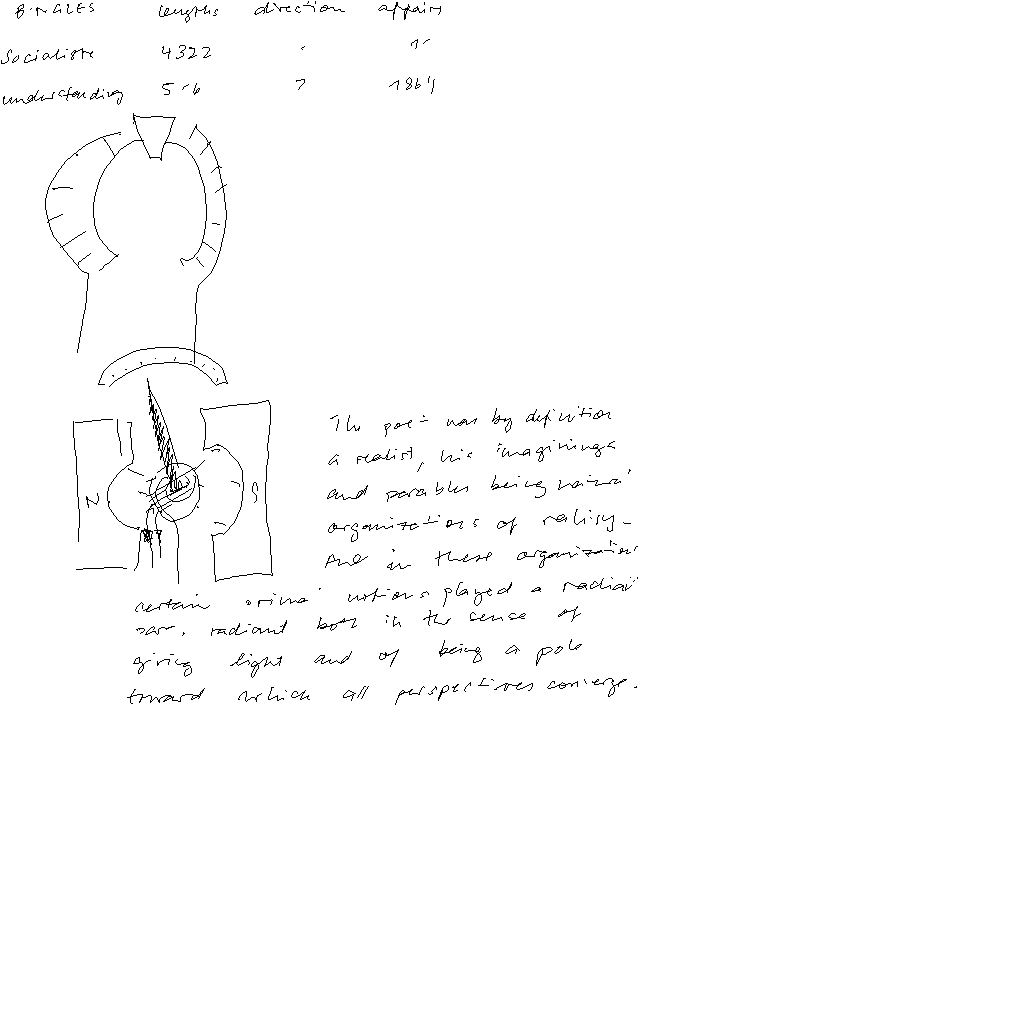 B·NGLES lengths direction affairs
Socialiste 4322
understanding 5-6 7 1864
N
S
The poet was by definition
a realist, his imaginings
and parables being natural
organizations of reality.
And in these organizations
certain primal notions played a radial
part, radiant both in the sense of
giving light and of being a pole
toward which all perspectives converge.